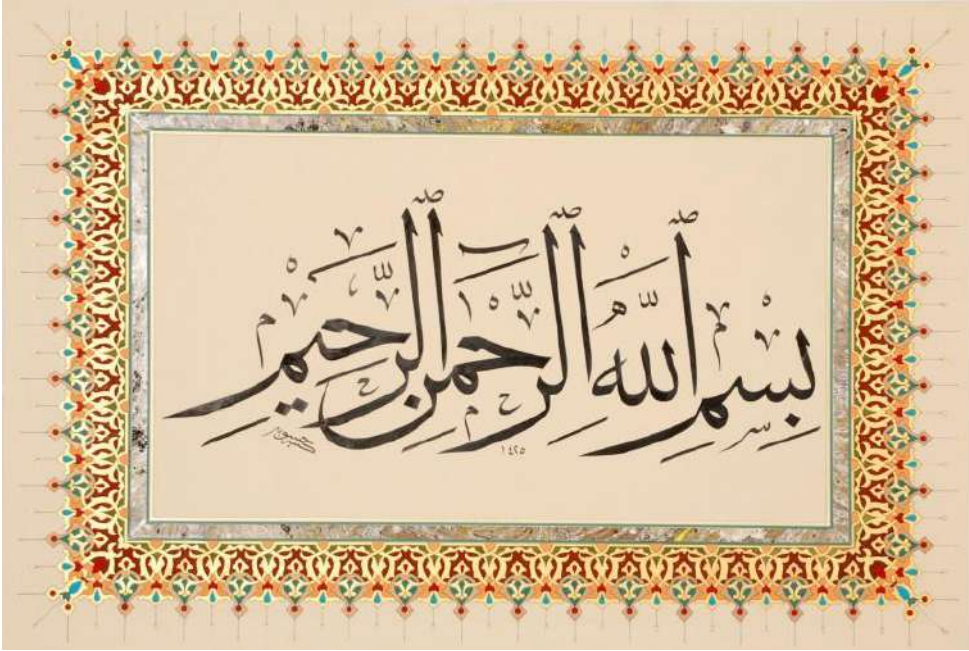 بِسْمِ ٱللَّهِ ٱلرَّحْمَٰنِ ٱلرَّحِيمِ
١٤٢٥